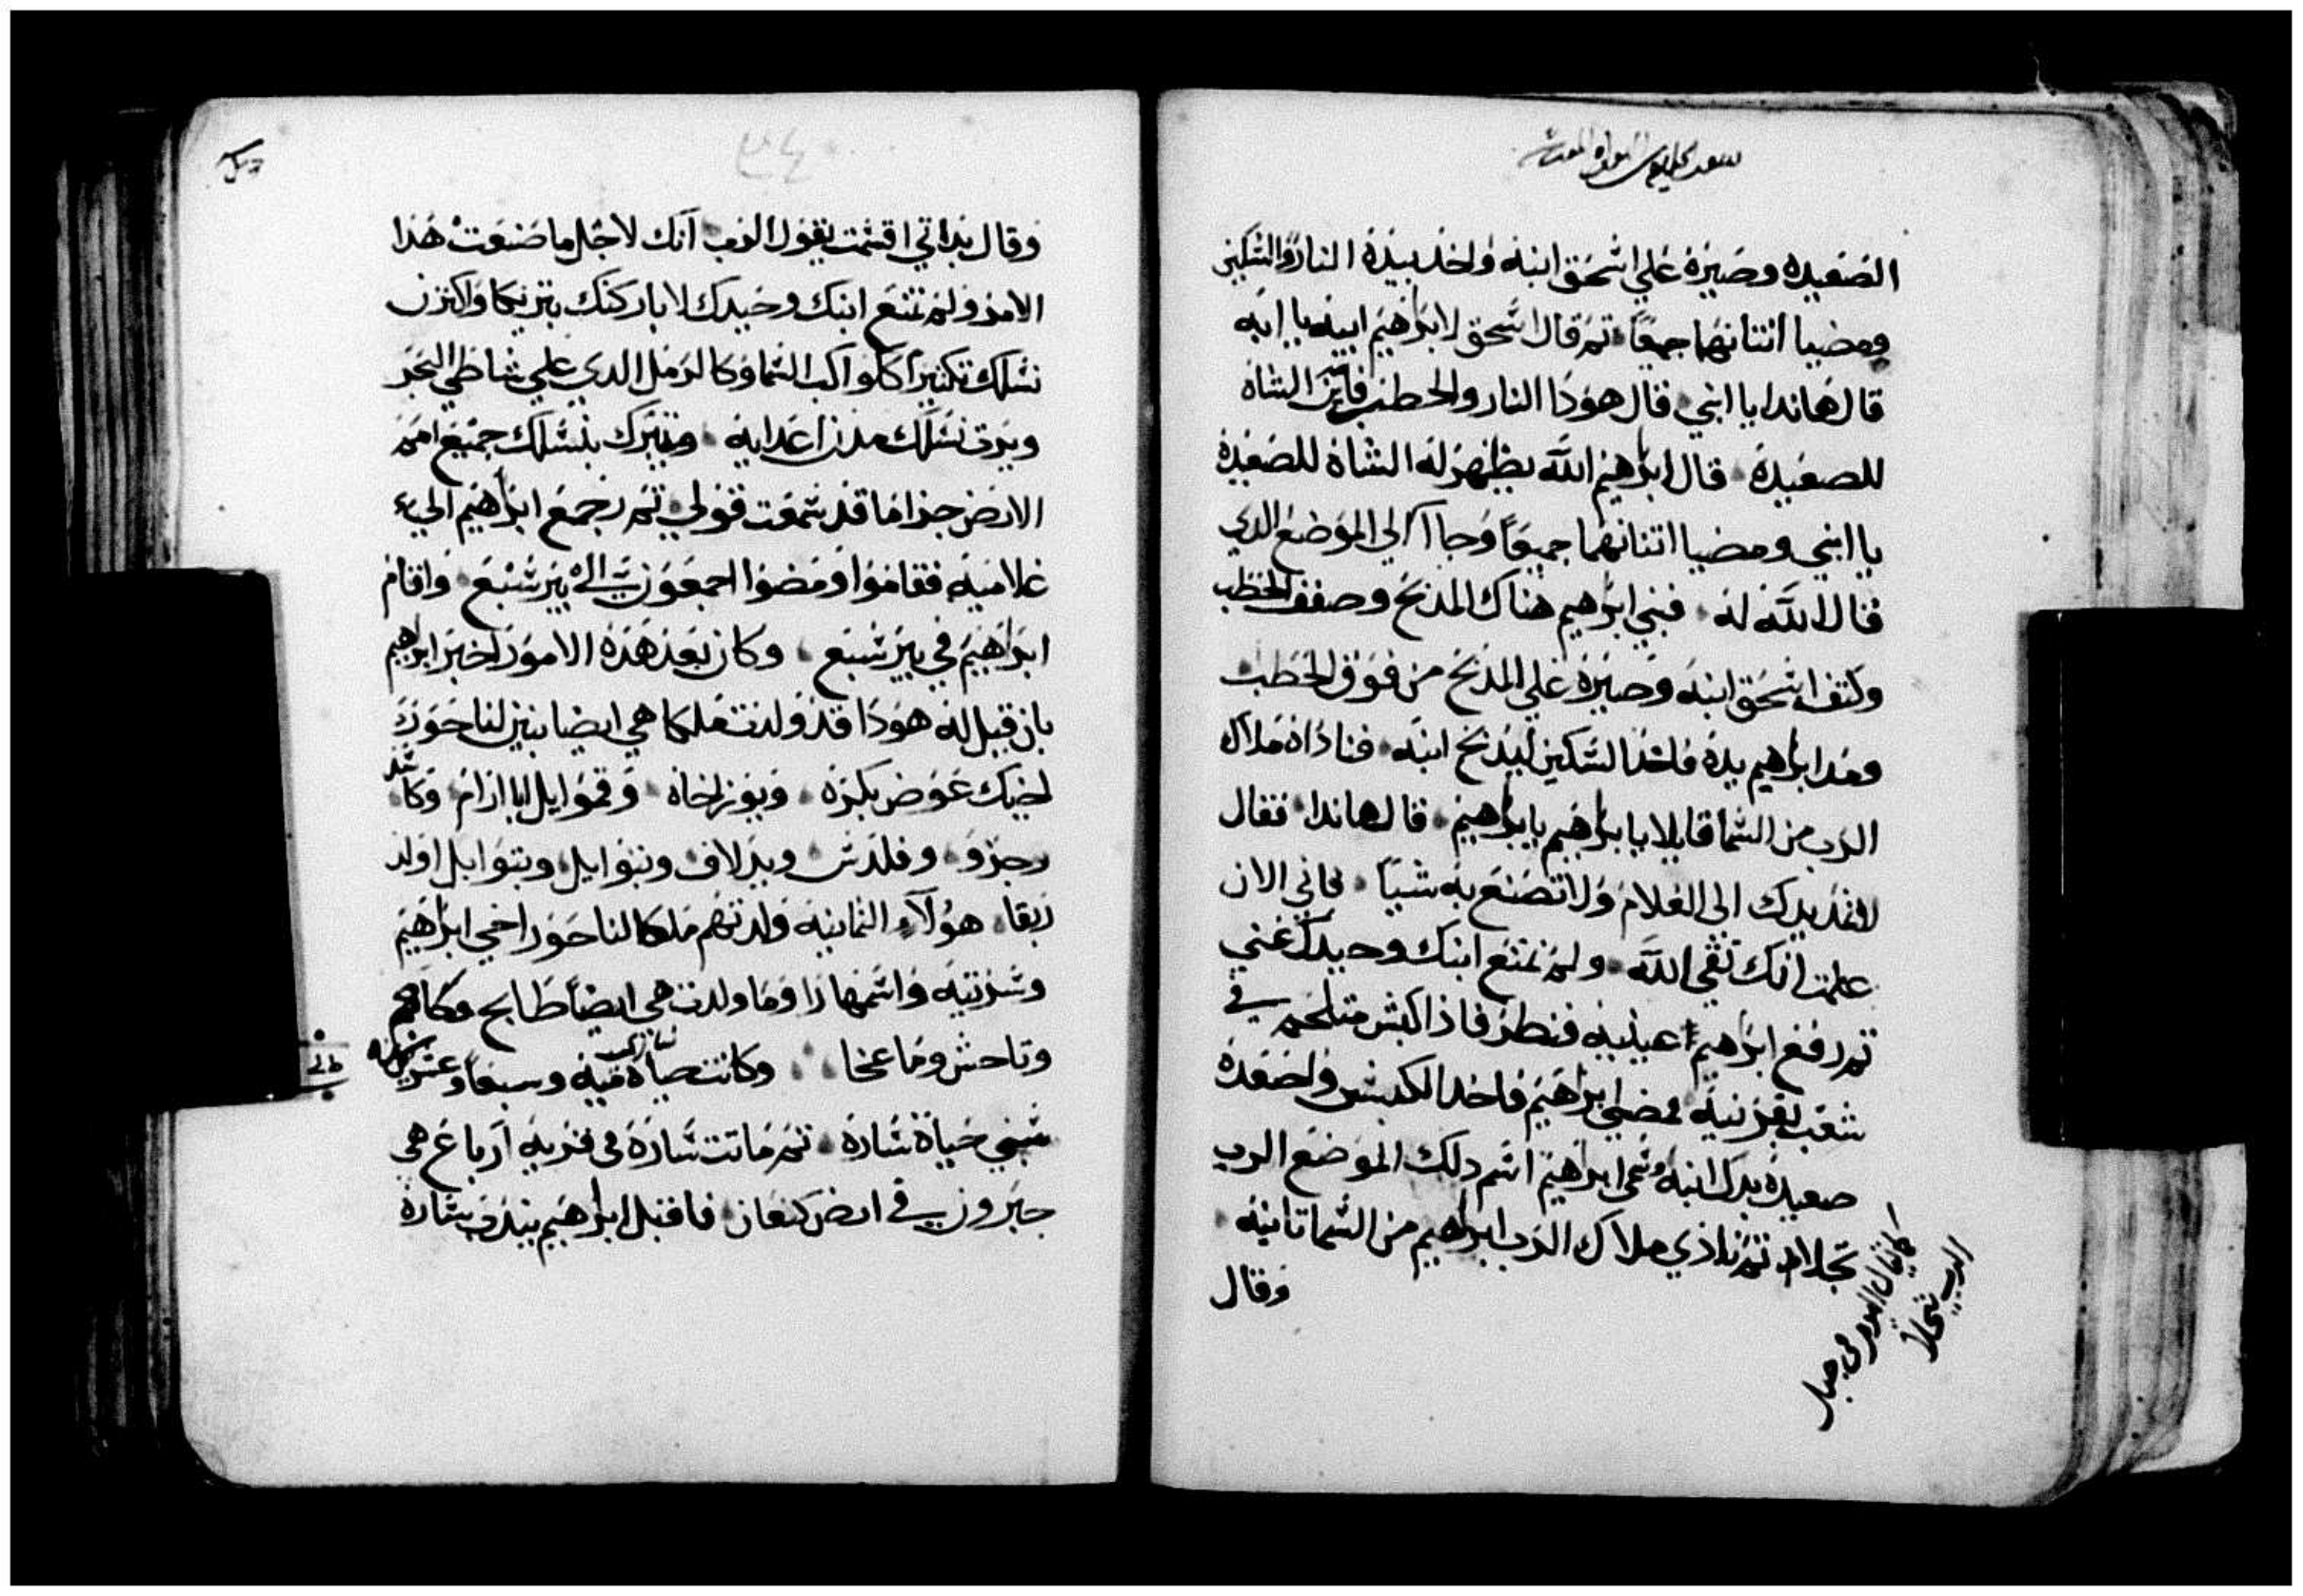 الصعيده وصيره علي اسحق ابنه واخد بيده النار والسكين
ومضيا اتنانهما جميعًا تم قال اسحق لابراهيم ابيه يا ابه
قال هاندا يا ابني فقال هودا النار والحطب فاين الشاه
للصعيدة قال ابراهيم الله يظهر له الشاة للصعيدة
يا ابني ومضيا اتنانهما جميعًا وجاآ الي الموضع الدي
قال الله له فبني ابراهيم هناك المدبح وصفف الحطب
وكتف اسحق ابنه وصيره علي المدبح من فوق الحطب
ومد ابراهيم يده فاخد السكين ليدبح ابنه فناداه ملاك
الرب من السما قايلا يا ابراهيم يا ابراهيم قال هاندا فقال
لا تمد يدك الي الغلام ولا تصنع به شيًا فاني الان
علمت انك تتقي الله ولم تمنع ابنك وحيدك عني
تم رفع ابراهيم عينيه فنظر فاذا كبش ملتحم في
شعب بقرنيه فمضي ابراهيم فاخد الكبش واصعده
صعيدة بدل ابنه وسمي ابراهيم اسم دلك الموضع الرب
تجلا تم نادي ملاك الرب ابراهيم من السما تانيه
كما يقال اليوم في جبل
الرب تجلا
وقال
وقال بداتي اقسمت يقول الرب انك لاجل ما صنعت هدا
الامر ولم تمنع ابنك وحيدك لاباركنك تبريكا واكترن
نسلك تكتيرا ككواكب السما وكالرمل الدي علي شاطي البحر
ويرت نسلك مدن اعدايه ويتبرك بنسلك جميع امم
الارض جزا ما قد سمعت قولي تم رجع ابراهيم الي
غلاميه فقاموا ومضوا اجمعون الي بير سبع واقام
ابراهيم في بير سبع وكان بعد هده الامور اخبر ابراهيم
بان قيل له هودا قد ولدت ملكا هي ايضا بنين لناحور
اخيك عوض بكره وبوز اخاه وقموايل ابا ارام وكاسد
وحزو وفلدش ويدلاف وبتوايل وبتوايل اولد
ربقا هولاء التمانيه ولدتهم ملكا لناحور اخي ابراهيم
وسريته واسمها را وما ولدت هي ايضًا طابح وكاحم
وتاحش وماعخا وكانت حياة ساره ميه وسبعا وعشرين سنه
سني حياة سارة تم ماتت سارة في قريه ارباع هي
حبرون في ارض كنعان فاقبل ابراهيم يندب سارة